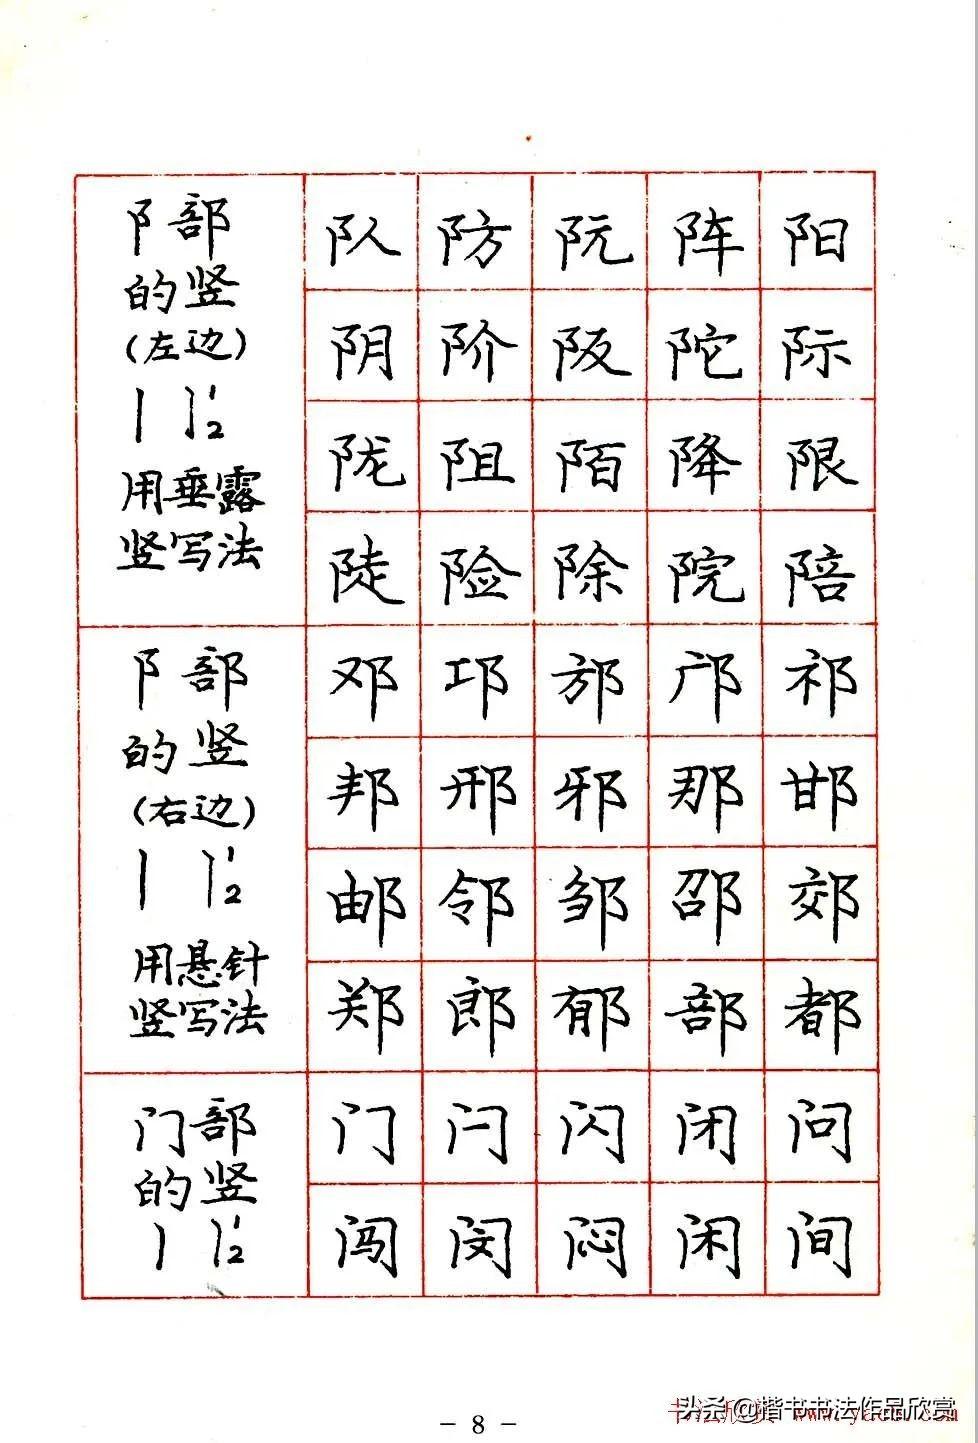 阝部
的竖
(左边)
丨 丨1 2
用垂露
竖写法
队 防 阮 阵 阳
阴 阶 阪 陀 际
陇 阻 陌 降 限
陡 险 除 院 陪
阝部
的竖
(右边)
丨 丨1 2
用悬针
竖写法
邓 邛 邡 邝 祁
邦 邢 邪 那 邯
邮 邻 邹 邵 郊
郑 郎 郁 部 都
门部
的竖
丨 丨1 2
门 闩 闪 闭 问
闯 闵 闷 闲 间
- 8 -
头条@楷书书法作品欣赏